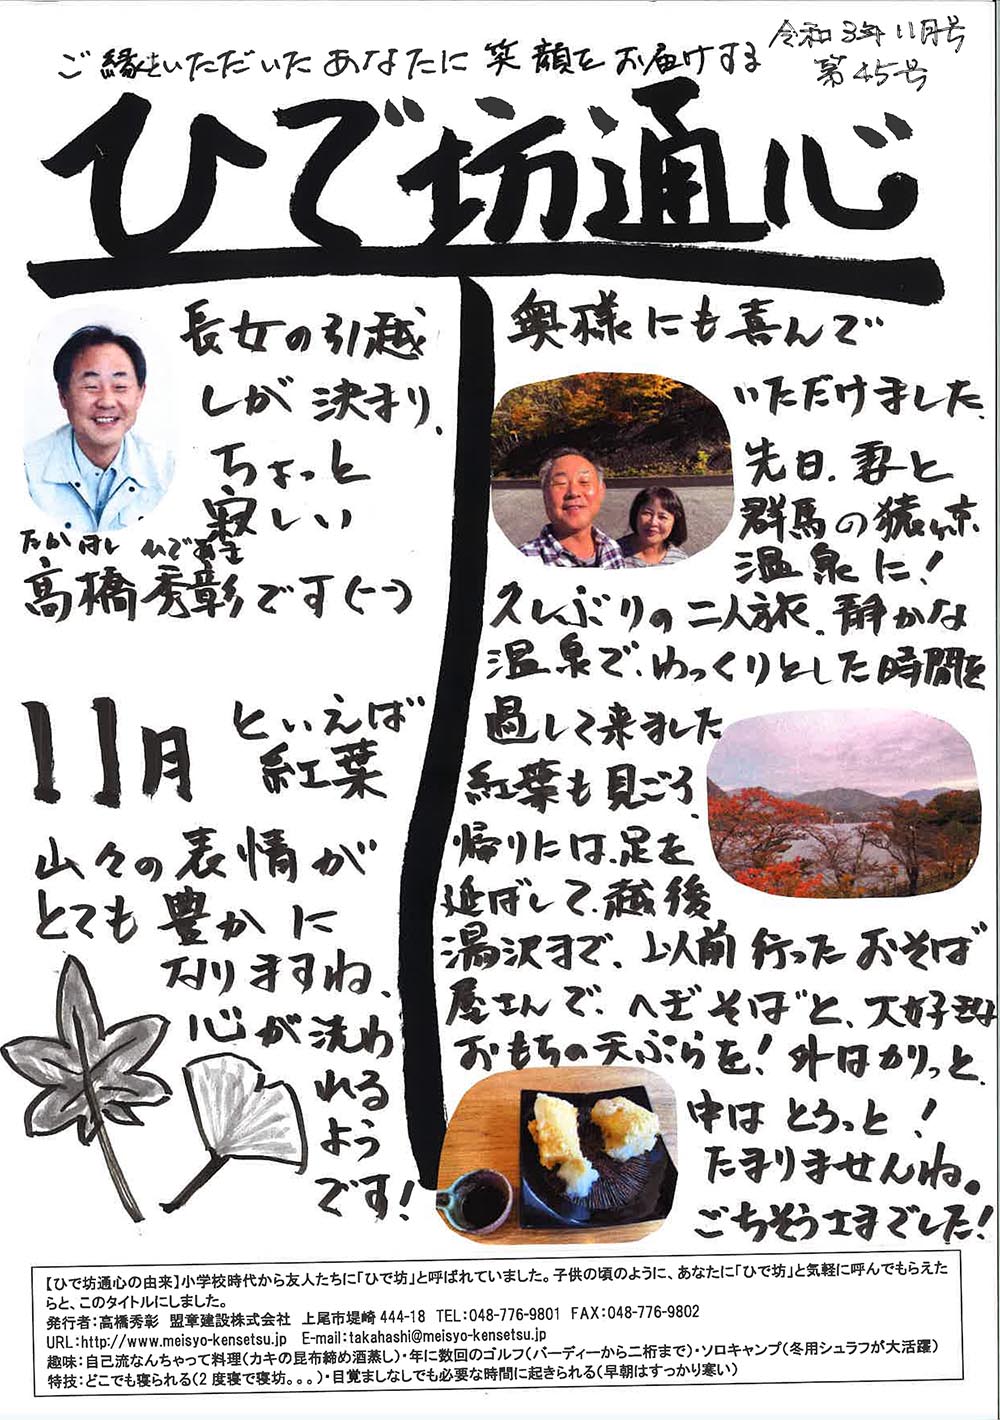 令和3年11月号
第45号
ご縁をいただいたあなたに笑顔をお届けする
ひで坊通心
長女の引越
しが決まり、
ちょっと
寂しい
たかはし ひであき
高橋秀彰です(--)
11月
といえば
紅葉
山々の表情が
とても豊かに
なりますね、
心が洗わ
れる
よう
です!
奥様にも喜んで
いただけました。
先日、妻と
群馬の猿ヶ京
温泉に!
久しぶりの二人旅、静かな
温泉で、ゆっくりとした時間を
過して来ました
紅葉も見ごろ、
帰りには、足を
延ばして、越後
湯沢まで、以前行ったおそば
屋さんで、へぎそばと、大好きな
おもちの天ぷらを!外はカリっと、
中はとろっと!
たまりませんね。
ごちそうさまでした!
【ひで坊通心の由来】小学校時代から友人たちに「ひで坊」と呼ばれていました。子供の頃のように、あなたに「ひで坊」と気軽に呼んでもらえた
らと、このタイトルにしました。
発行者:高橋秀彰 盟章建設株式会社 上尾市堤崎444-18 TEL:048-776-9801 FAX:048-776-9802
URL:http://www.meisyo-kensetsu.jp E-mail:takahashi@meisyo-kensetsu.jp
趣味:自己流なんちゃって料理(カキの昆布締め酒蒸し)・年に数回のゴルフ(バーディーから二桁まで)・ソロキャンプ(冬用シュラフが大活躍)
特技:どこでも寝られる(2度寝で寝坊。。。)・目覚ましなしでも必要な時間に起きられる(早朝はすっかり寒い)